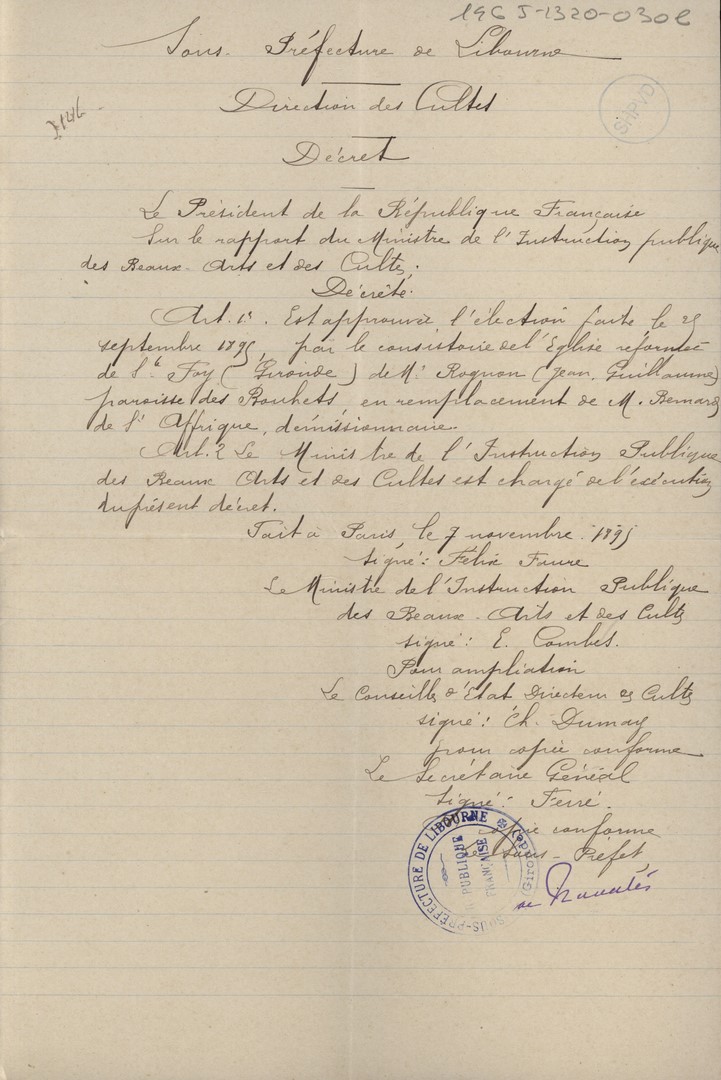 196 J-1320-030
Sous-Préfecture de Libourne
SHPVD
Direction des Cultes
Décret
Le Président de la République Française
Sur le rapport du Ministre de l'Instruction publique
des Beaux-Arts et des Cultes.
Décrète.
Art. 1er. Est approuvée l'élection faite le 25
septembre 1895, par le consistoire de l'Eglise réformée
de Ste Foy (Gironde) de Mr Rognon (Jean Guillaume)
paroisse des Bouhets, en remplacement de M. Bernard
de St Affrique, démissionnaire.
Art. 2 Le Ministre de l'Instruction Publique
des Beaux Arts et des Cultes est chargé de l'exécution
du présent décret.
Fait à Paris, le 7 novembre 1895
signé: Felix Faure
Le Ministre de l'Instruction Publique
des Beaux-Arts et des Cultes
signé: E. Combes.
Pour ampliation
Le Conseiller d'Etat Directeur des Cultes
signé: Ch. Dumay
pour copie conforme
Le Secrétaire Général
signé: Ferré.
copie conforme
Le Sous-Préfet,
SOUS-PRÉFECTURE DE LIBOURNE
RÉPUBLIQUE
FRANÇAISE